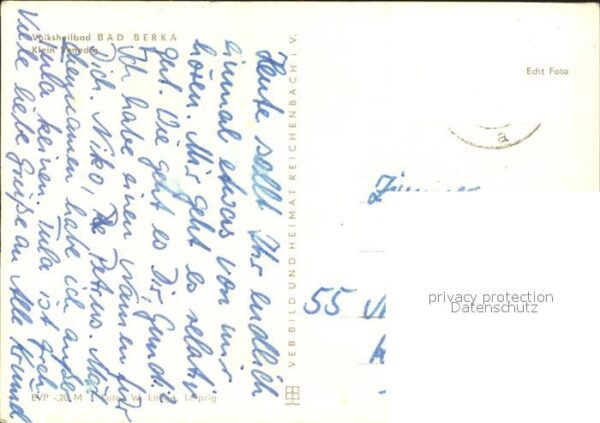 Volksheilbad BAD BERKA
Klein Venedig
Heute sollt Ihr endlich
einmal etwas von mir
hören. Mir geht es relativ
gut. Wie geht es Dir, Gundi?
Ich habe einen Namen für
Dich. Niko, De Petrus. Mäd
chennamen habe ich außer
Tula keinen. Tula ist
Viele liebe Grüße an Alle
EVP -,20 M Foto: W. Leipzig
VEB BILD UND HEIMAT REICHENBACH i. V.
Echt Foto
55
privacy protection
Datenschutz